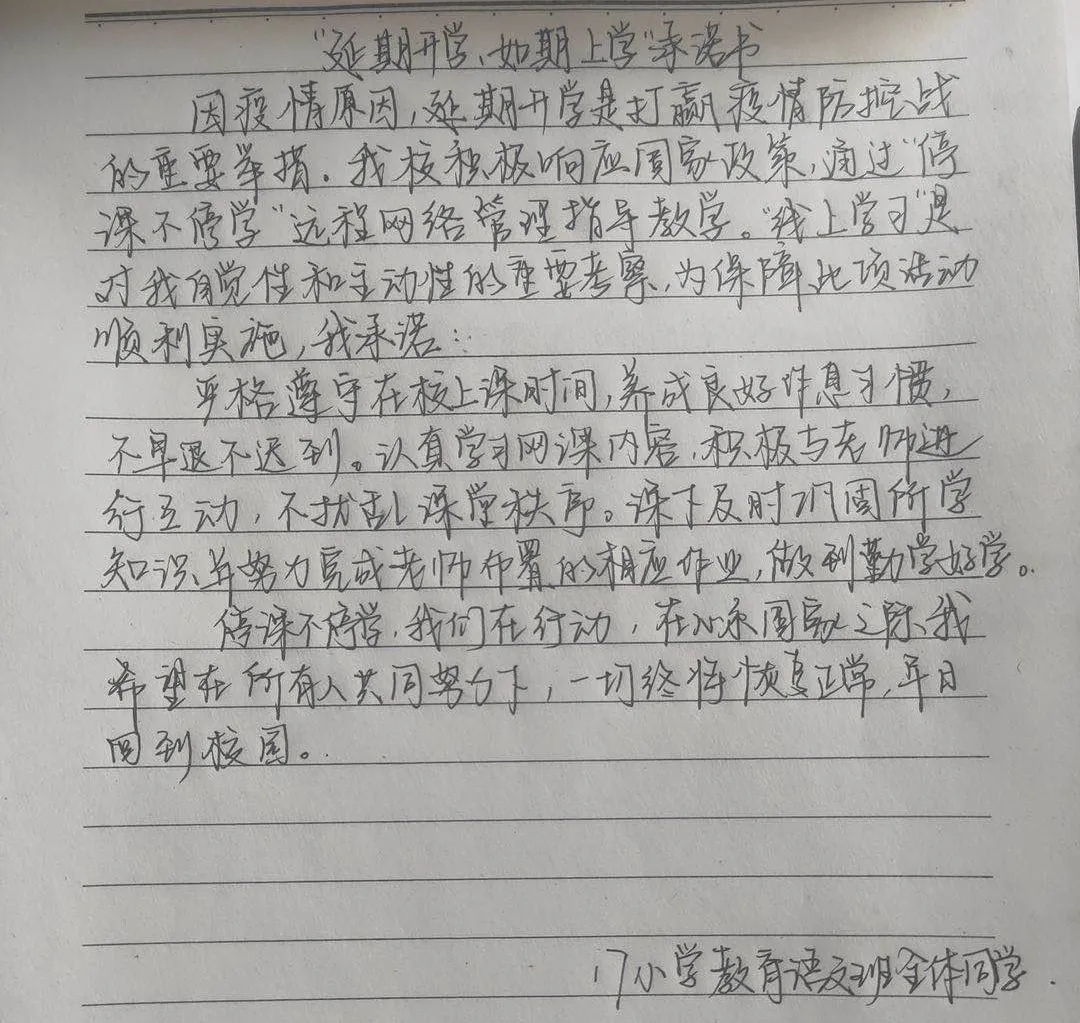 “延期开学、如期上学”承诺书
因疫情原因,延期开学是打赢疫情防控战
的重要举措.我校积极响应国家政策,通过“停
课不停学”远程网络管理指导教学。“线上学习”是
对我自觉性和主动性的重要考察,为保障此项活动
顺利实施,我承诺:
严格遵守在校上课时间,养成良好作息习惯,
不早退不迟到。认真学习网课内容,积极与老师进
行互动,不扰乱课堂秩序。课下及时巩固所学
知识,并努力完成老师布置的相应作业,做到勤学好学。
停课不停学,我们在行动,在心系国家之际,我
希望在所有人共同努力下,一切终将恢复正常,早日
回到校园。
17小学教育语文班全体同学.